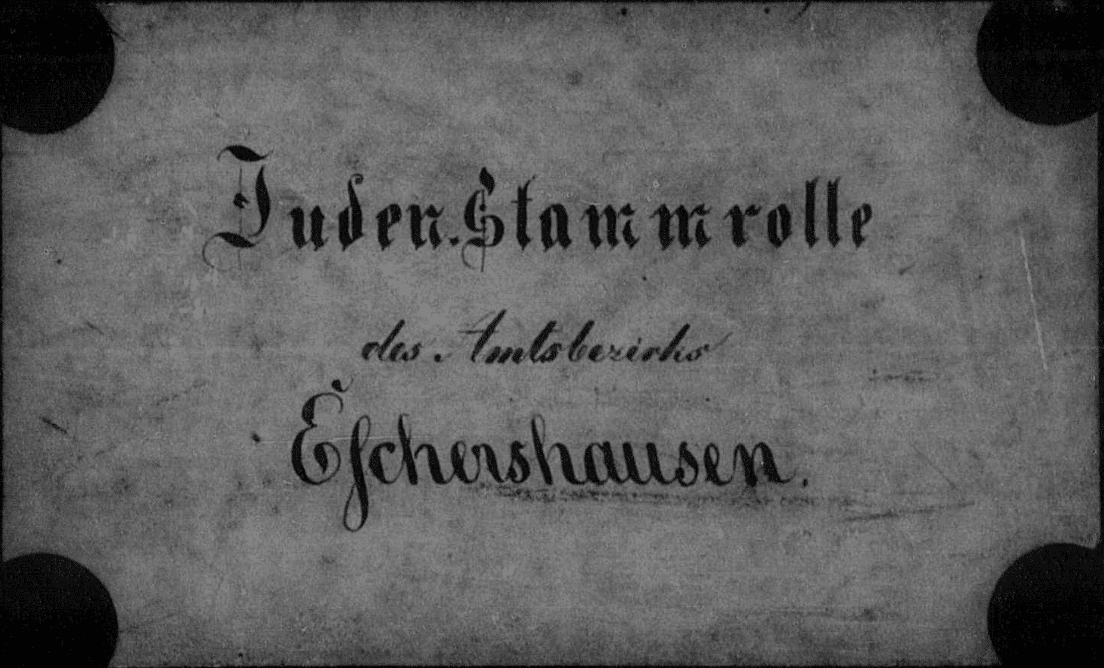 Juden-Stammrolle
des Amtsbezirks
Eſchershausen.